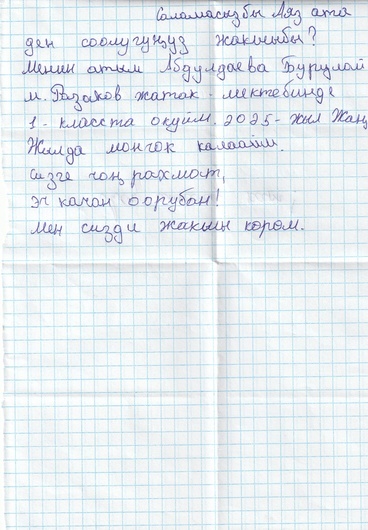 Саламасызбы Аяз ата
ден соолугуңуз жакшыбы?
Менин атым Абдулдаева Бурулай
И. Раззаков жатак - мектебинде
1 - класста окуйм. 2025 - жыл Жаңы
Жылда мончок каалайм.
Сизге чоң рахмат,
эч качан оорубаң!
Мен сизди жакшы көрөм.